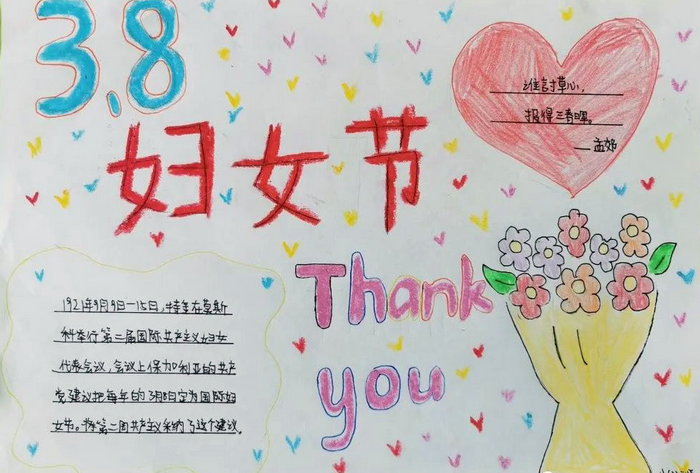 3.8
妇女节
谁言寸草心,
报得三春晖。
——孟郊
Thank
you
1921年9月9日—15日,在莫斯
科举行第二届国际共产主义妇女
代表会议,会议上保加利亚的共产
党建议把每年的3月8日定为国际妇
女节。第二届共产主义采纳了这个建议。